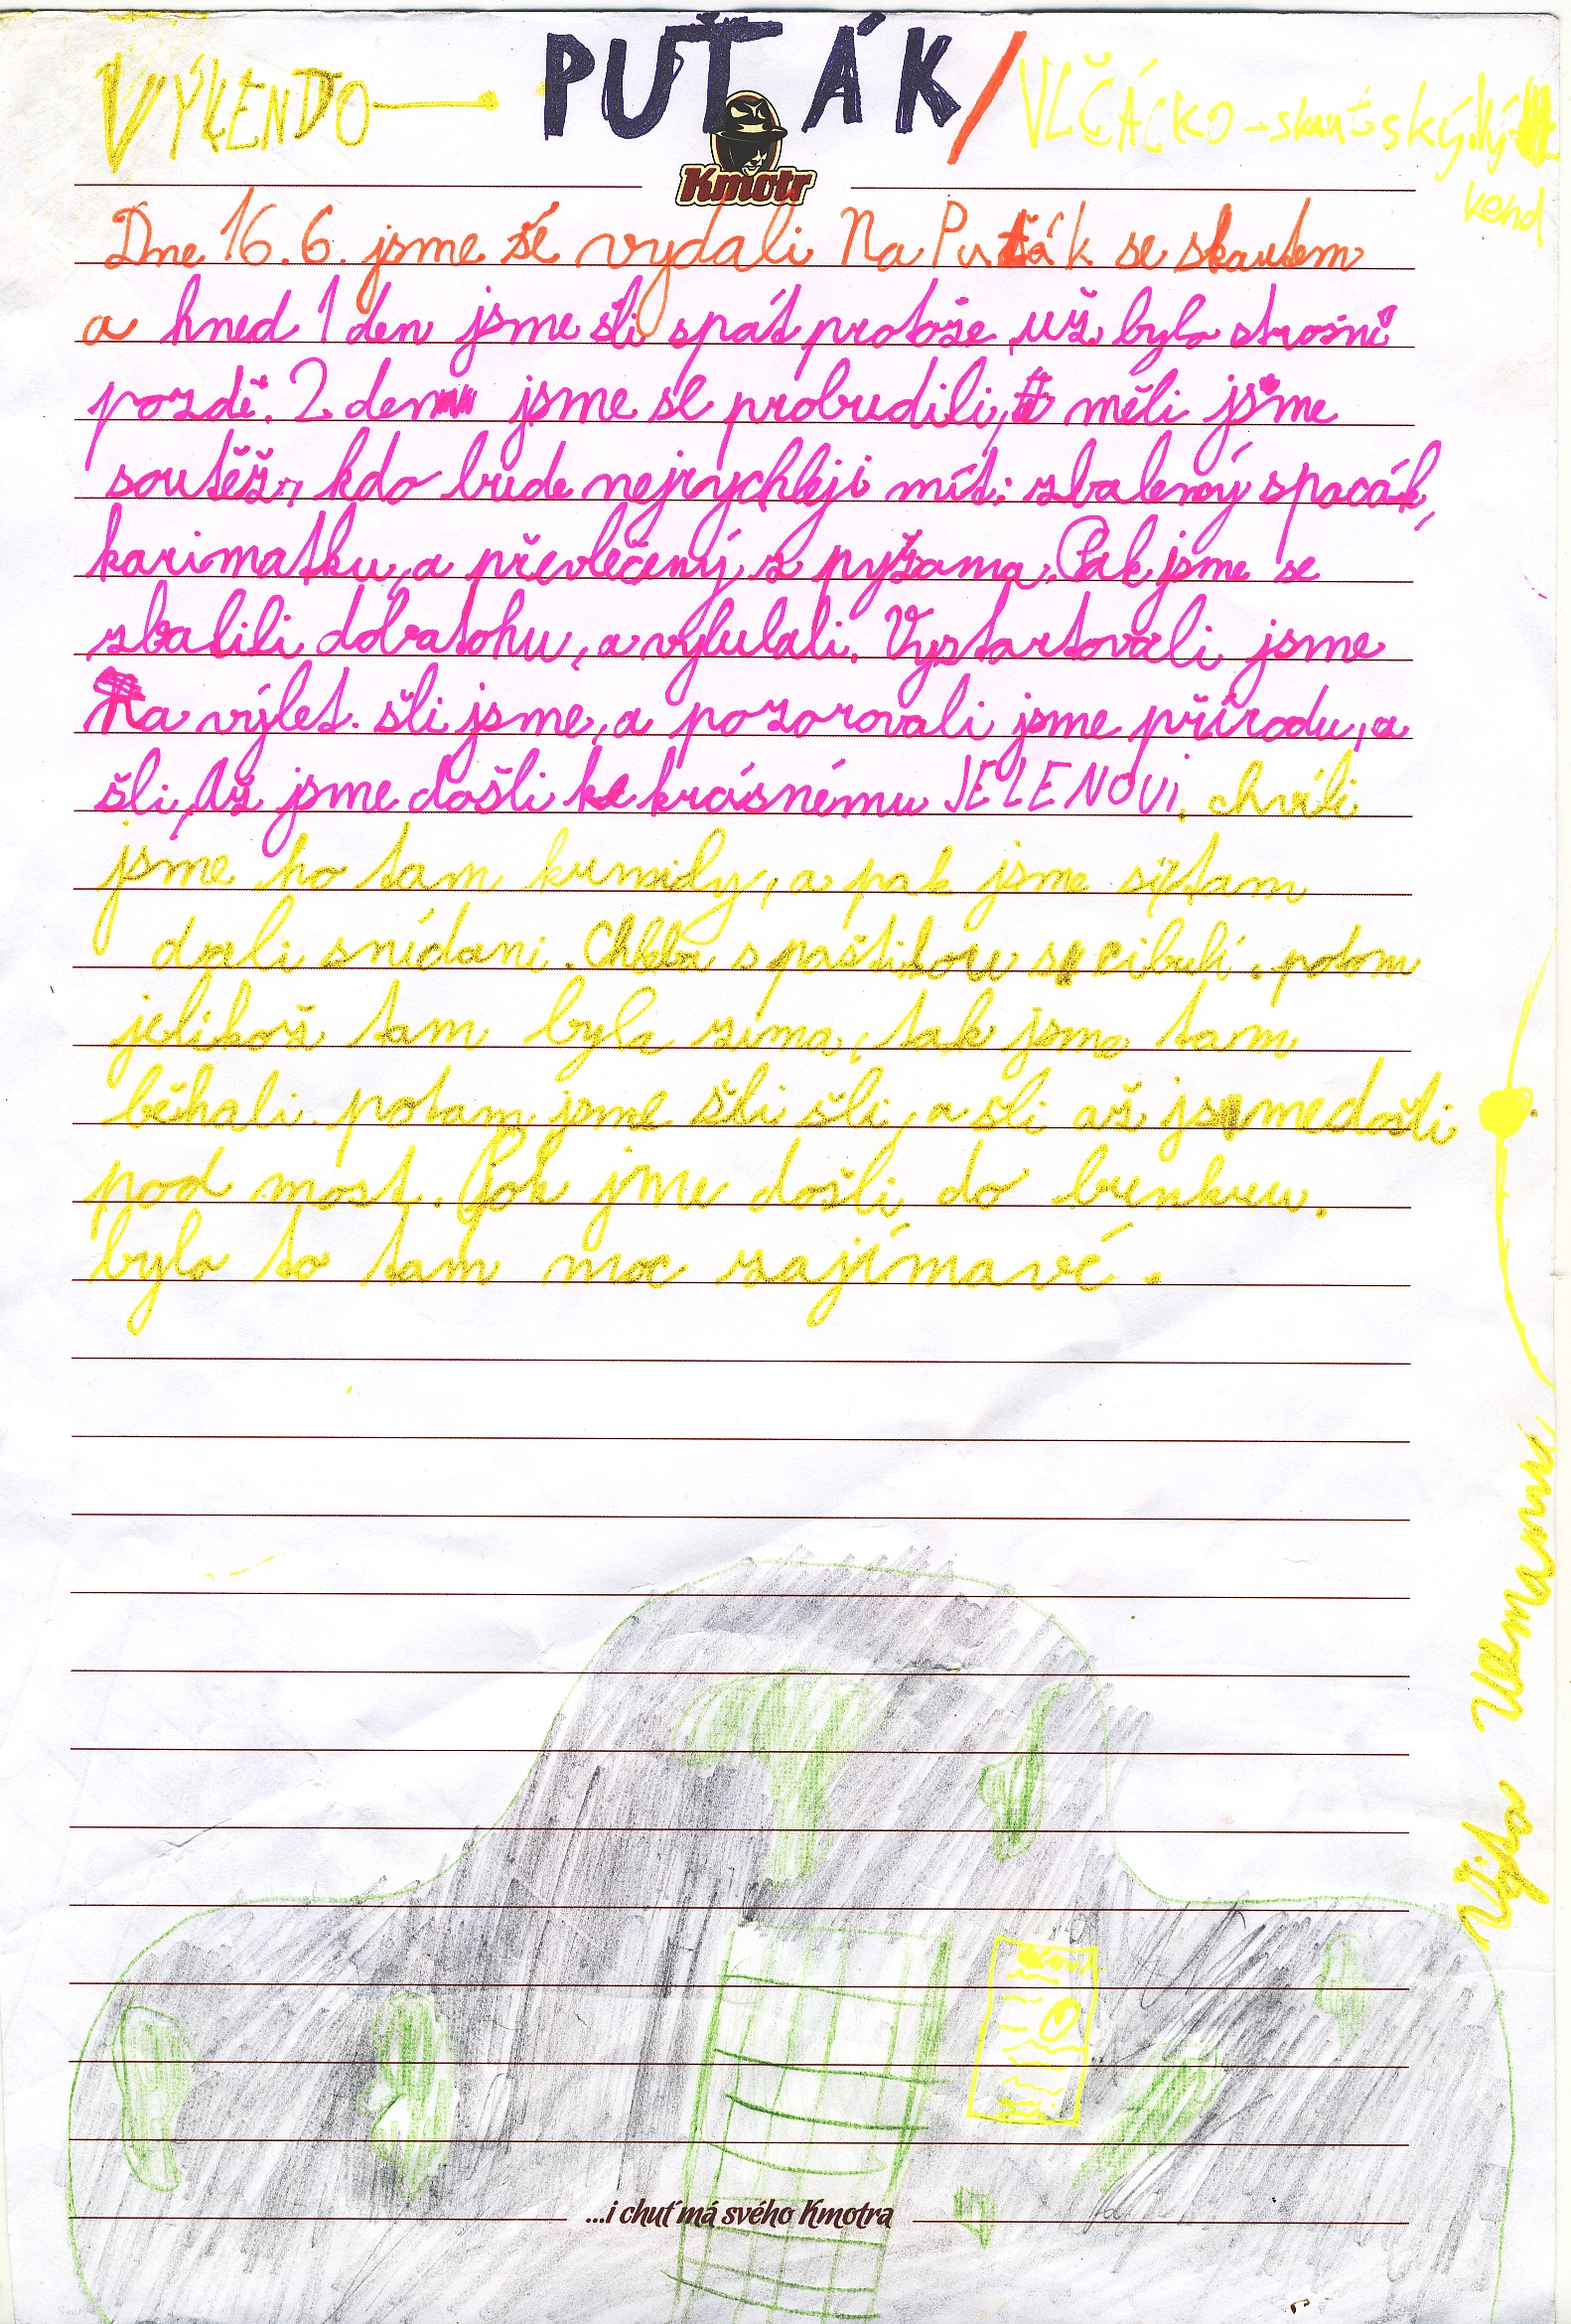 VÝKENDO PUŤÁK/VLČÁCKO-skautský vý
kend
Kmotr
Dne 16.6. jsme se vydali Na Puťák se skautem
a hned 1 den jsme šli spát protože už bylo strašně
pozdě. 2 den jsme se probudili, měli jsme
soutěž, kdo bude nejrychleji mít: zbalený spacák,
karimatku, a převlečený z pyžama. Pak jsme se
zbalili dobatohu, a vylulali. Vystartovali jsme
Na výlet. šli jsme, a pozorovali jsme přírodu, a
šli, Až jsme došli ke krásnému JELENOVI. chvíli
jsme ho tam kumidly, a pak jsme si tam
dali snídani. Chleba s paštikou s cibulí. potom
jelikož tam byla zima, tak jsme tam
běhali. potom jsme šli šli, a šli až jsme došli
pod most. Pak jme došli do bunkru.
bylo to tam moc zajímavé.
Víťa
...i chuť má svého Kmotra